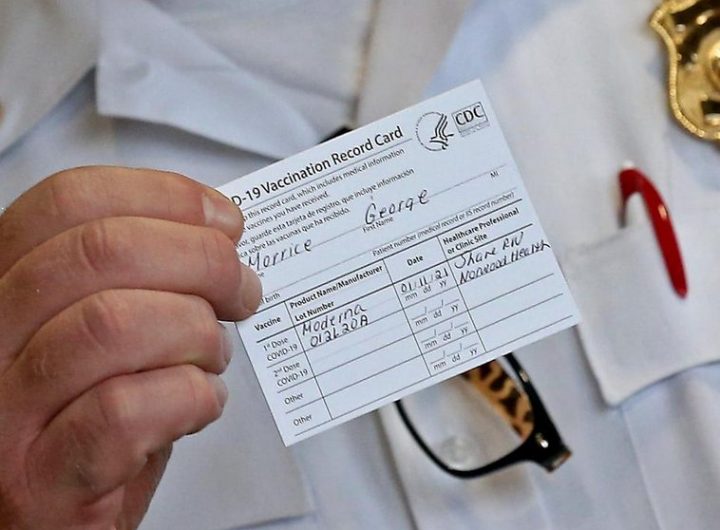 D-19 Vaccination Record Card
CDC
this record card, which includes medical information
vaccines you have received.
guarde esta tarjeta de registro, que incluye información
sobre las vacunas que ha recibido.
Morrice George
First Name MI
Patient number (medical record or IIS record number)
Vaccine Product Name/Manufacturer Date Healthcare Professional
Lot Number or Clinic Site
1st Dose Moderna 01/11/21 Shane RN
COVID-19 012L20A mm dd yy Norwood Health
2nd Dose
COVID-19 mm dd yy
Other mm dd yy
Other mm dd yy